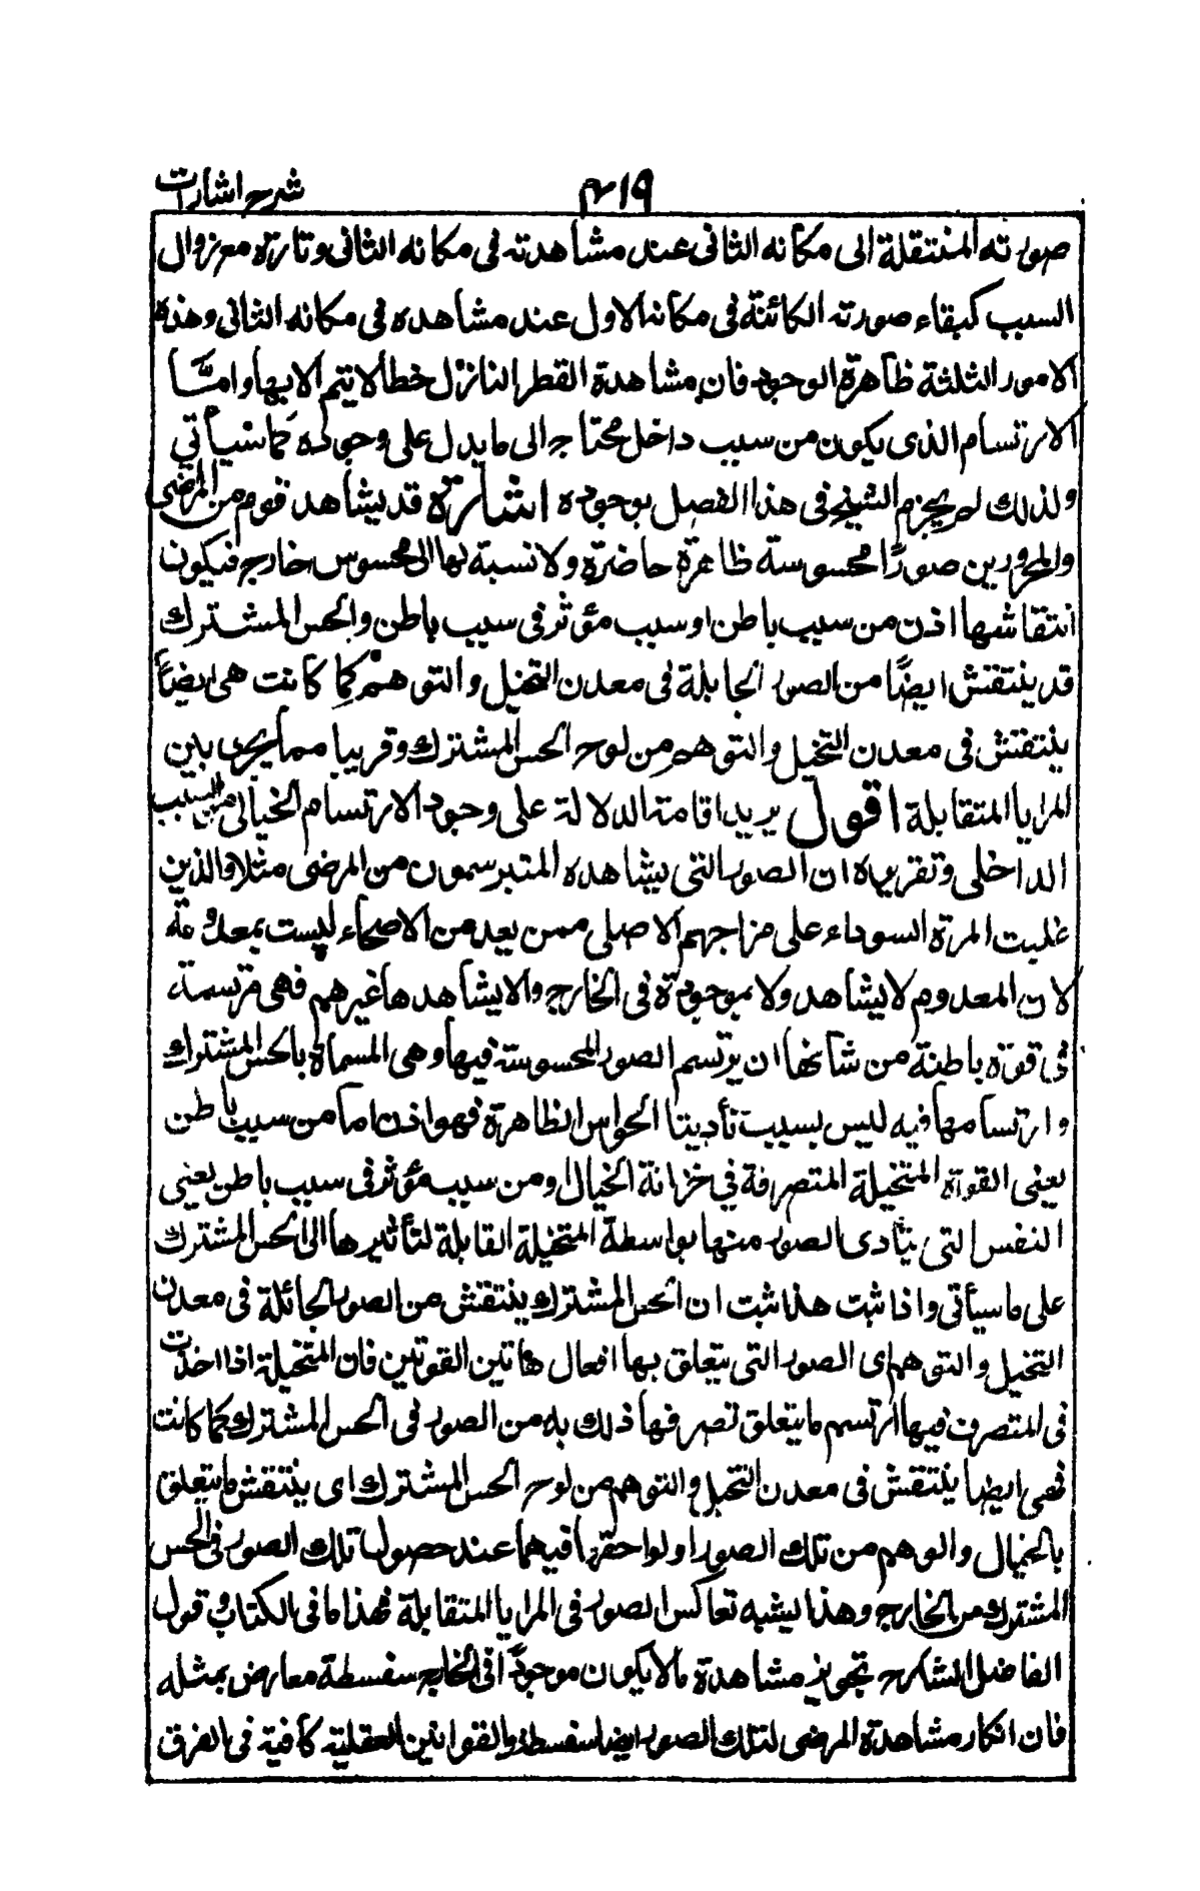 شرح اشارات
٤١٩
صورته المنتقلة الى مكانه الثانى عند مشاهدته فى مكانه الثانى وتارة مع زوال
السبب كبقاء صورته الكائنة فى مكانه الاول عند مشاهده فى مكانه الثانى وهذه
الامور الثلثة ظاهرة الوجود فان مشاهدة القطر النازل خطا لا يتم الا بها وامّا
الارتسام الذى يكون من سبب داخل محتاج الى ما يدل على وجوده كما سيأتى
ولذلك لم يجزم الشيخ فى هذا الفصل بوجوده اشارة قد يشاهد قوم من المرضى
والمحرورين صورًا محسوسة ظاهرة حاضرة ولا نسبة لها الى محسوس خارج فيكون
انتقاشها اذن من سبب باطن او سبب مؤثر فى سبب باطن والحس المشترك
قد ينتقش ايضًا من الصور الجايلة فى معدن التخيل والتوهم كما كانت هى ايضًا
ينتقش فى معدن التخيل والتوهم من لوح الحس المشترك وقريبا مما يجرى بين
المرايا المتقابلة اقول يريد اقامة الدلالة على وجود الارتسام الخيالى من السبب
الداخلى وتقريره ان الصور التى يشاهده المتبرسمون من المرضى مثلا والذين
غلبت المرة السوداء على مزاجهم الاصلى ممن يعد من الاصحاء ليست بمعدومة
لان المعدوم لا يشاهد ولا بموجودة فى الخارج والا يشاهدها غيرهم فهى مرتسمة
فى قوة باطنة من شانها ان يرتسم الصور المحسوسة فيها وهى المسماة بالحس المشترك
وارتسامها فيه ليس بسبب تأديتا الحواس الظاهرة فهو اذن اما من سبب باطن
يعنى القوة المتخيلة المتصرفة في خزانة الخيال او من سبب مؤثر فى سبب باطن يعنى
النفس التى يتأدى الصور منها بواسطة المتخيلة القابلة لتأثيرها الى الحس المشترك
على ما سيأتى واذا ثبت هذا ثبت ان الحس المشترك ينتقش من الصور الجائلة فى معدن
التخيل والتوهم اى الصور التى يتعلق بها افعال هاتين القوتين فان المتخيلة اذا اخذت
فى المتصرف فيها ارتسم ما يتعلق تصرفها ذلك به من الصور فى الحس المشترك كما كانت
فهى ايضا ينتقش فى معدن التخيل والتوهم من لوح الحس المشترك اى ينتقش ما يتعلق
بالخيال والوهم من تلك الصور او لواحقها فيهما عند حصول تلك الصور فى الحس
المشترك من الخارج وهذا يشبه تعاكس الصور فى المرايا المتقابلة فهذا ما فى الكتاب وقول
الفاضل الشارح تجويز مشاهدة ما لا يكون موجودًا فى الخارج سفسطة معارض بمثله
فان انكار مشاهدة المرضى لتلك الصور ايضا سفسطة والقوانين العقلية كافية فى الفرق